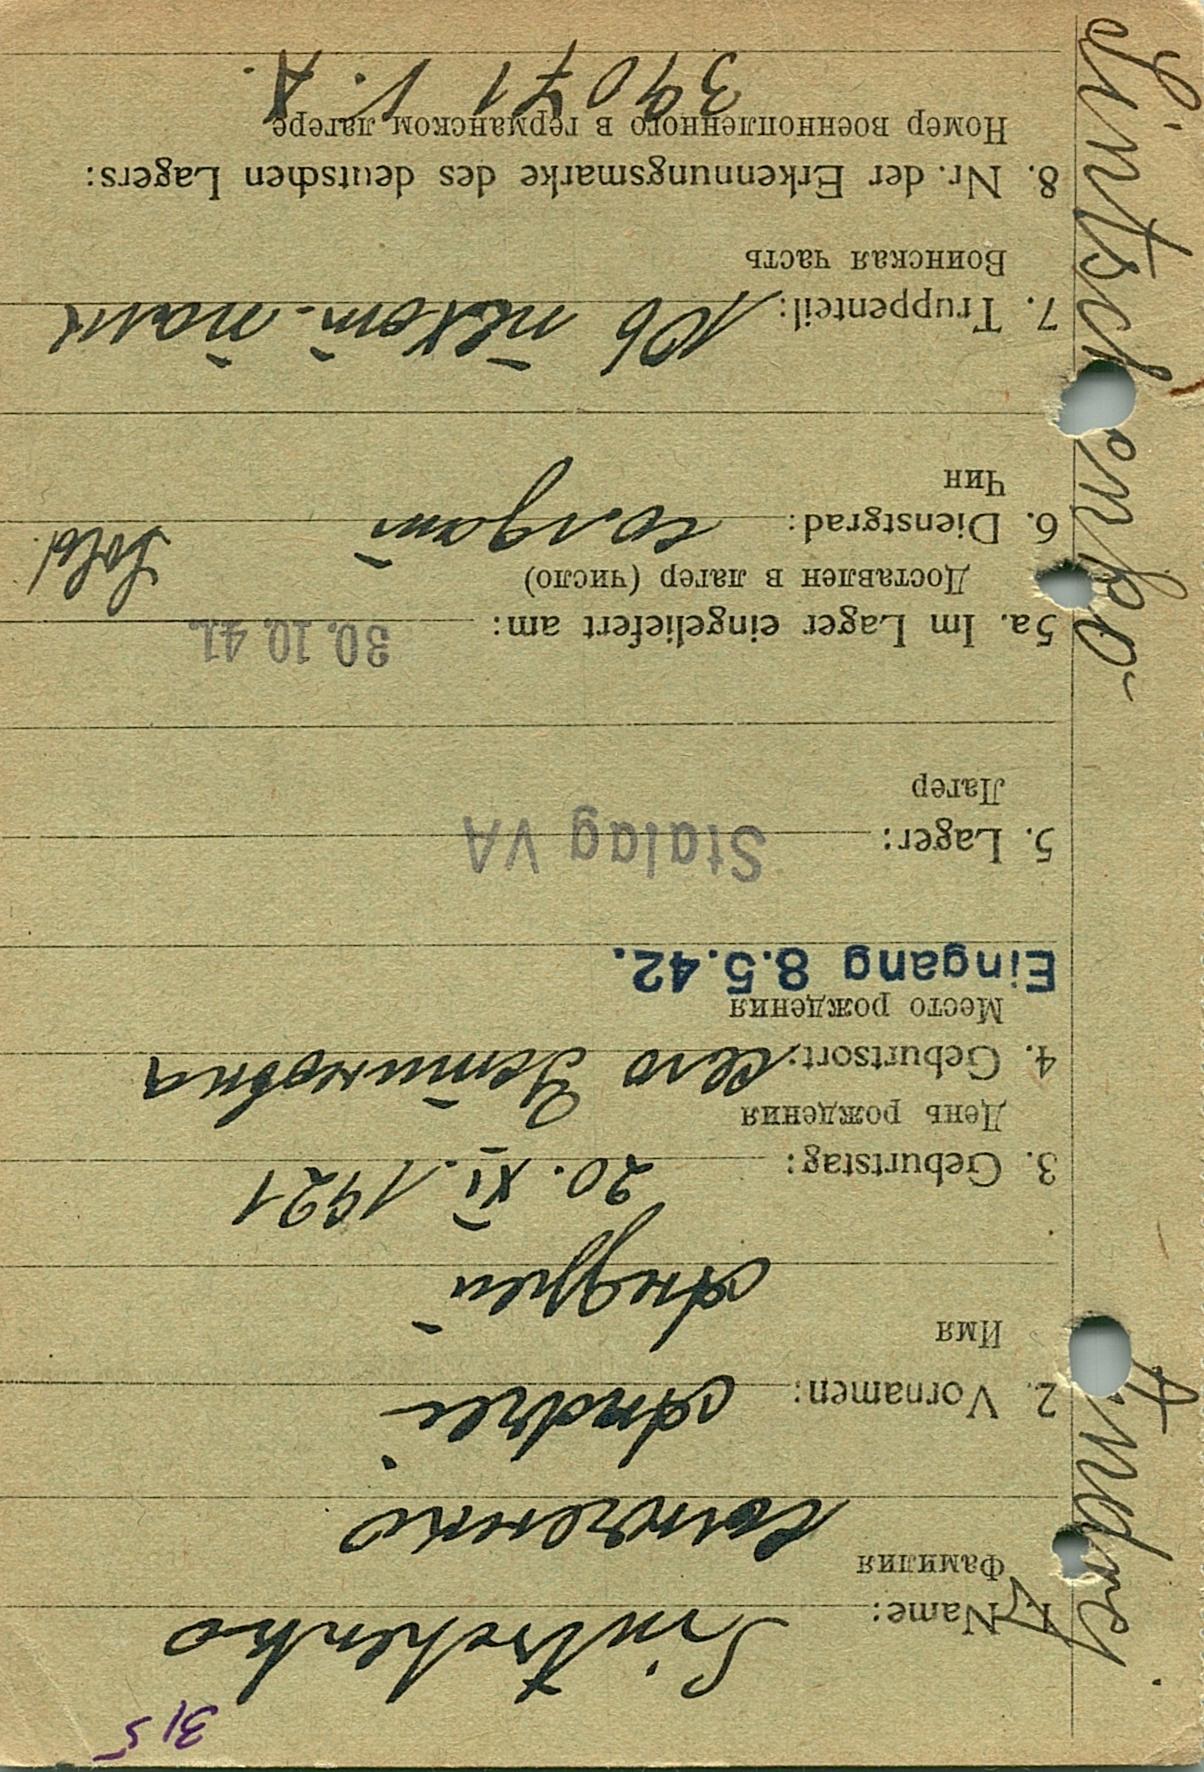 315
1. Name: Sintschenko
Фамилия
Синченко
2. Vornamen: Andrei
Имя
Андрей
3. Geburtstag: 20. XI. 1921
День рождения
4. Geburtsort: село Устиновка
Место рождения
Eingang 8.5.42.
5. Lager: Stalag VA
Лагер
5a. Im Lager eingeliefert am: 30. 10. 41.
Доставлен в лагер (число)
Sold.
6. Dienstgrad: солдат
Чин
7. Truppenteil: 106 пехот. полк
Воинская часть
8. Nr. der Erkennungsmarke des deutschen Lagers:
Номер военнопленного в германском лагере
39071 V. A.
Sintschenko Andrej